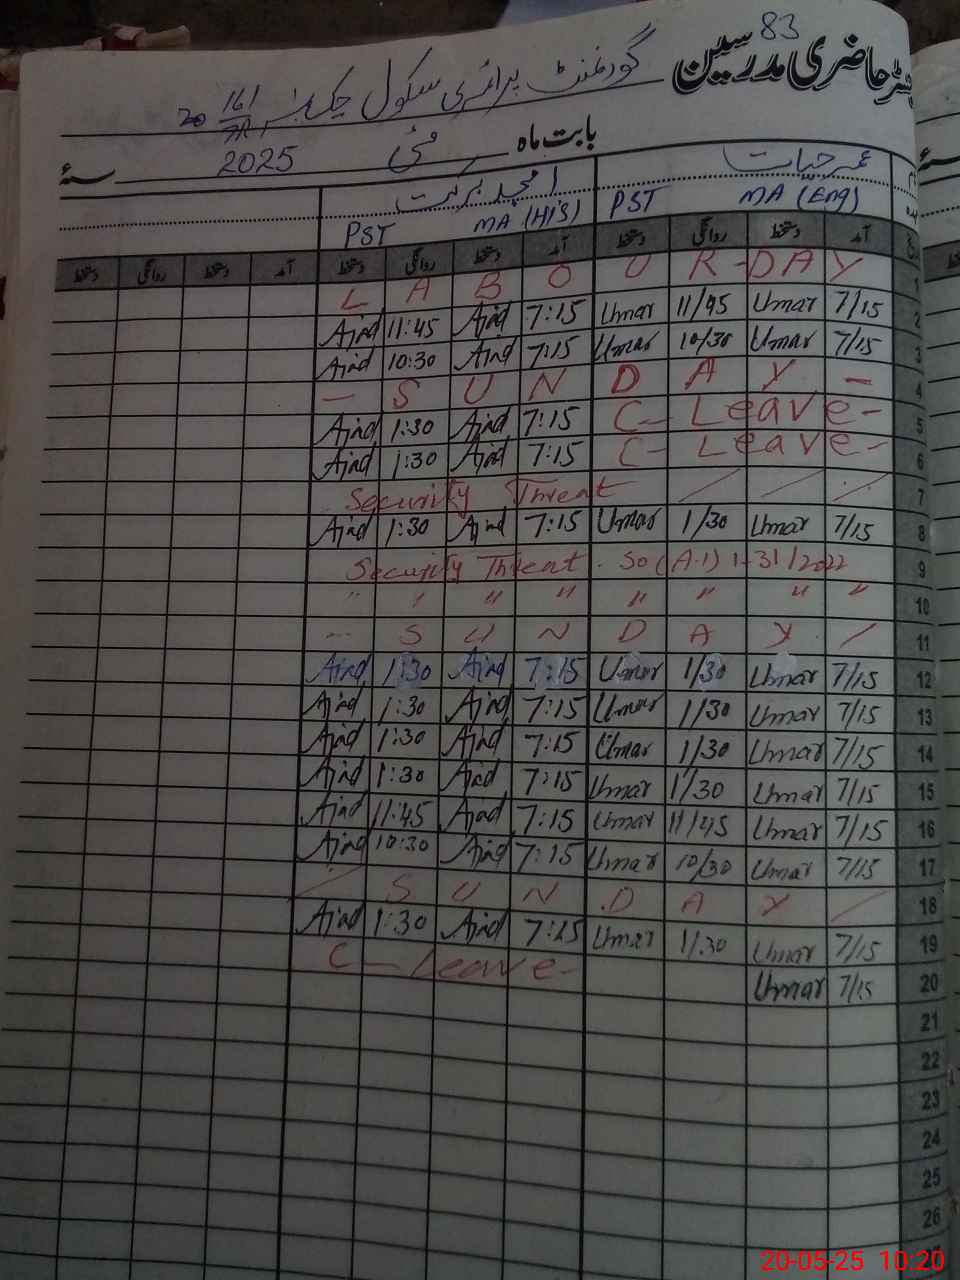 83
رجسٹر حاضری مدرسین
گورنمنٹ پرائمری سکول چک نمبر 161
بابت ماہ مئی 2025 سنۂ
عمر حیات امجد برکت
MA (Eng) PST MA (His) PST
آمد دستخط روانگی دستخط آمد دستخط روانگی دستخط آمد دستخط روانگی دستخط
L A B O U R - D A Y 1
Ajad 11:45 Ajad 7:15 Umar 11/45 Umar 7/15 2
Ajad 10:30 Ajad 7:15 Umar 10/30 Umar 7/15 3
- S U N D A Y - 4
Ajad 1:30 Ajad 7:15 C- Leave- 5
Ajad 1:30 Ajad 7:15 C- Leave- 6
Security Threat 7
Ajad 1:30 Ajad 7:15 Umar 1/30 Umar 7/15 8
Security Threat. So (A.I) 1-31/2022 9
" " " " " " " " 10
- S U N D A Y / 11
Ajad 1:30 Ajad 7:15 Umar 1/30 Umar 7/15 12
Ajad 1:30 Ajad 7:15 Umar 1/30 Umar 7/15 13
Ajad 1:30 Ajad 7:15 Umar 1/30 Umar 7/15 14
Ajad 1:30 Ajad 7:15 Umar 1/30 Umar 7/15 15
Ajad 11:45 Ajad 7:15 Umar 11/45 Umar 7/15 16
Ajad 10:30 Ajad 7:15 Umar 10/30 Umar 7/15 17
/ S U N D A Y / 18
Ajad 1:30 Ajad 7:15 Umar 1/30 Umar 7/15 19
C - Leave- Umar 7/15 20
21
22
23
24
25
26
20-05-25 10:20